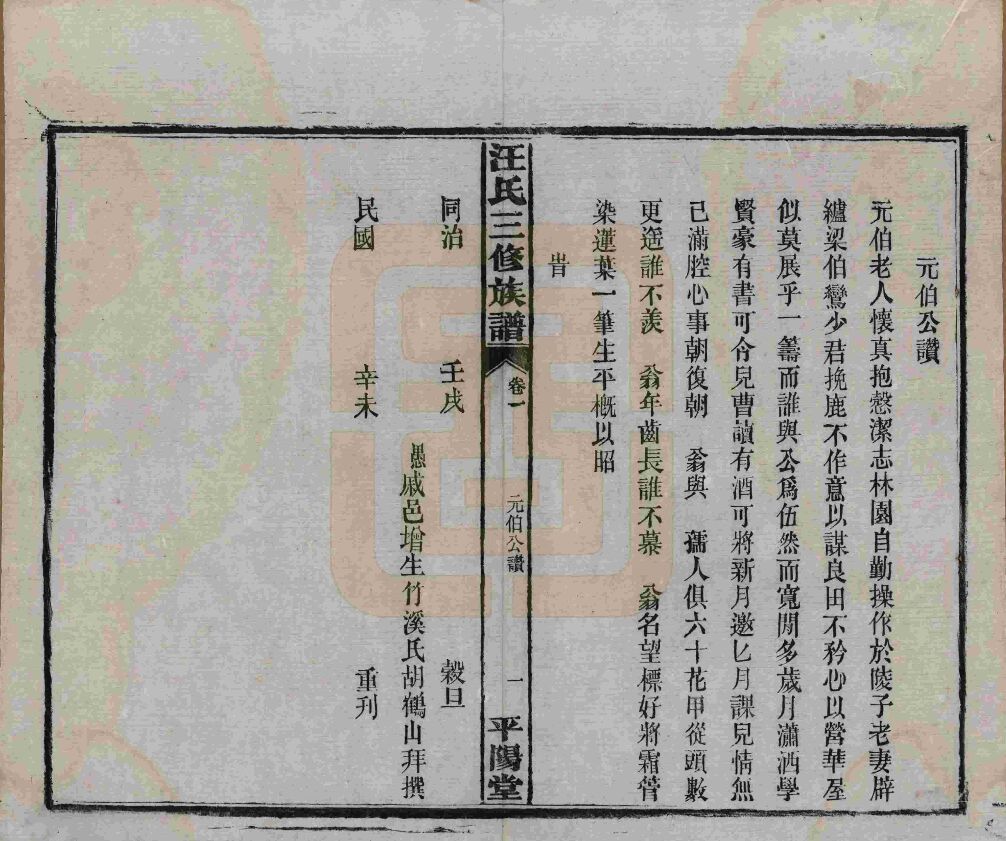 元伯公讚
元伯老人懷真抱慤潔志林園自勤操作於陵子老妻辟
纑梁伯鸞少君挽鹿不作意以謀良田不矜心以營華屋
似莫展乎一籌而誰與公爲伍然而寬閒多歲月瀟洒學
賢豪有書可令兒曹讀有酒可將新月邀匕月課兒情無
已滿腔心事朝復朝 翁與 孺人俱六十花甲從頭數
更遥誰不羨 翁年齒長誰不慕 翁名望標好將霜管
染蓮葉一筆生平概以昭
旹
汪氏三修族譜
卷一
元伯公讚
一
平陽堂
同治 壬戌 穀旦
愚戚邑增生竹溪氏胡鶴山拜撰
民國 辛未 重刋